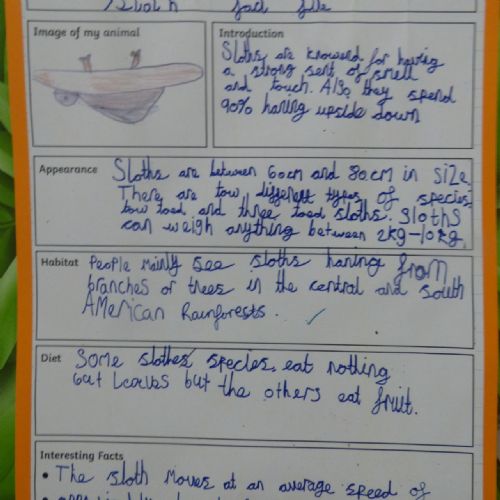 Sloth fact file
Image of my animal
Introduction
Sloths are knowend for having
a strong sent of smell
and touch. Also they spend
90% haning upside down
Appearance Sloths are between 60cm and 80cm in size.
There are tow different types of species
tow toed and three toed sloths. Sloths
can weigh anything between 2kg-10kg.
Habitat People mainly see sloths haning from
branches or trees in the central and south
AMERican Rainforests.
Diet Some slothes species eat nothing
but Leaves but the others eat fruit.
Interesting Facts
• The sloth moves at an average speed of